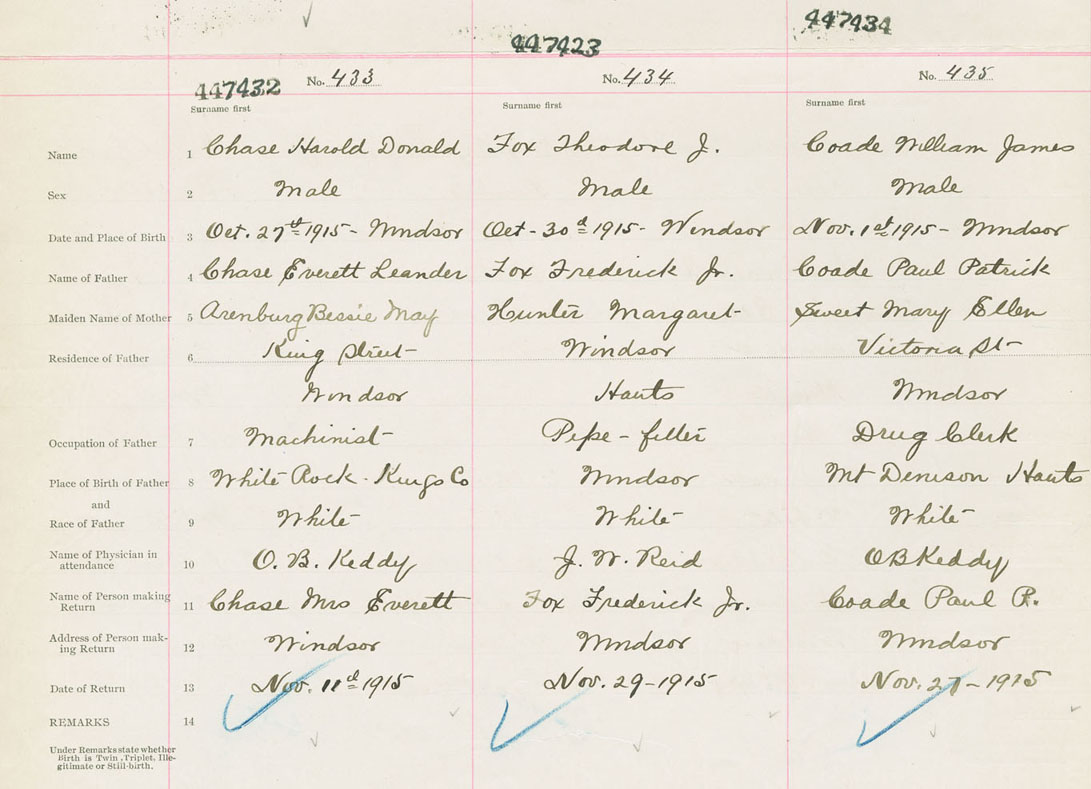 447434
447423
447432 No. 433 No. 434 No. 435
Surname first Surname first Surname first
Name 1 Chase Harold Donald Fox Theodore J. Coade William James
Sex 2 Male Male Male
Date and Place of Birth 3 Oct. 27th 1915 - Windsor Oct - 30d 1915 - Windsor Nov. 1st 1915 - Windsor
Name of Father 4 Chase Everett Leander Fox Frederick Jr. Coade Paul Patrick
Maiden Name of Mother 5 Arenburg Bessie May Hunter Margaret Sweet Mary Ellen
Residence of Father 6 King Street Windsor Victoria St
Windsor Hants Windsor
Occupation of Father 7 Machinist Pipe - fitter Drug Clerk
Place of Birth of Father 8 White Rock - Kings Co Windsor Mt Denison Hants
and
Race of Father 9 White White White
Name of Physician in
attendance 10 O. B. Keddy J. W. Reid O B Keddy
Name of Person making
Return 11 Chase Mrs Everett Fox Frederick Jr. Coade Paul P.
Address of Person mak-
ing Return 12 Windsor Windsor Windsor
Date of Return 13 Nov. 11d 1915 Nov. 29 - 1915 Nov. 27 - 1915
REMARKS 14
Under Remarks state whether
Birth is Twin, Triplet, Ille-
gitimate or Still-birth.